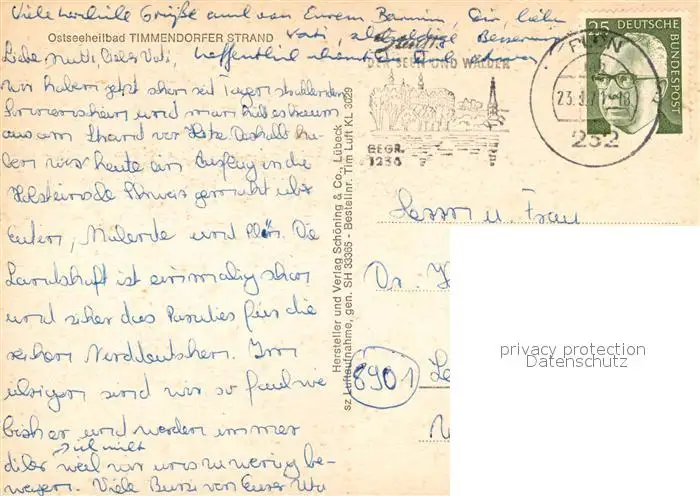 Viele herzliche Grüße auch von Eurem Bammi, Dir, liebe
Vati, alsbaldige Besserung
Ostseeheilbad TIMMENDORFER STRAND
Liebe Mutti, lieber Vati, hoffentlich
wir haben jetzt schon seit Tagen strahlenden
Sonnenschein und man hält es kaum
aus am Strand vor Hitze. Deshalb ha-
ben wir heute ein Ausflug in die
Holsteinische Schweiz gemacht über
Eutin, Malente und Plön. Die
Landschaft ist einmalig schön
und sicher das Paradies für die
reichen Norddeutschen. Im
übrigen sind wir so faul wie
bisher und werden immer
dicker weil wir uns zu wenig be-
wegen. Viele Bussi von Eurer
Hersteller und Verlag Schöning & Co., Lübeck
sz Luftaufnahme, gen. SH 33365 - Bestellnr. Tim Luft KL 3029
DER SEEN UND WÄLDER
GEGR.
1236
PLÖN
232
25 DEUTSCHE BUNDESPOST
Herrn u. Frau
Dr.
8901
privacy protection
Datenschutz